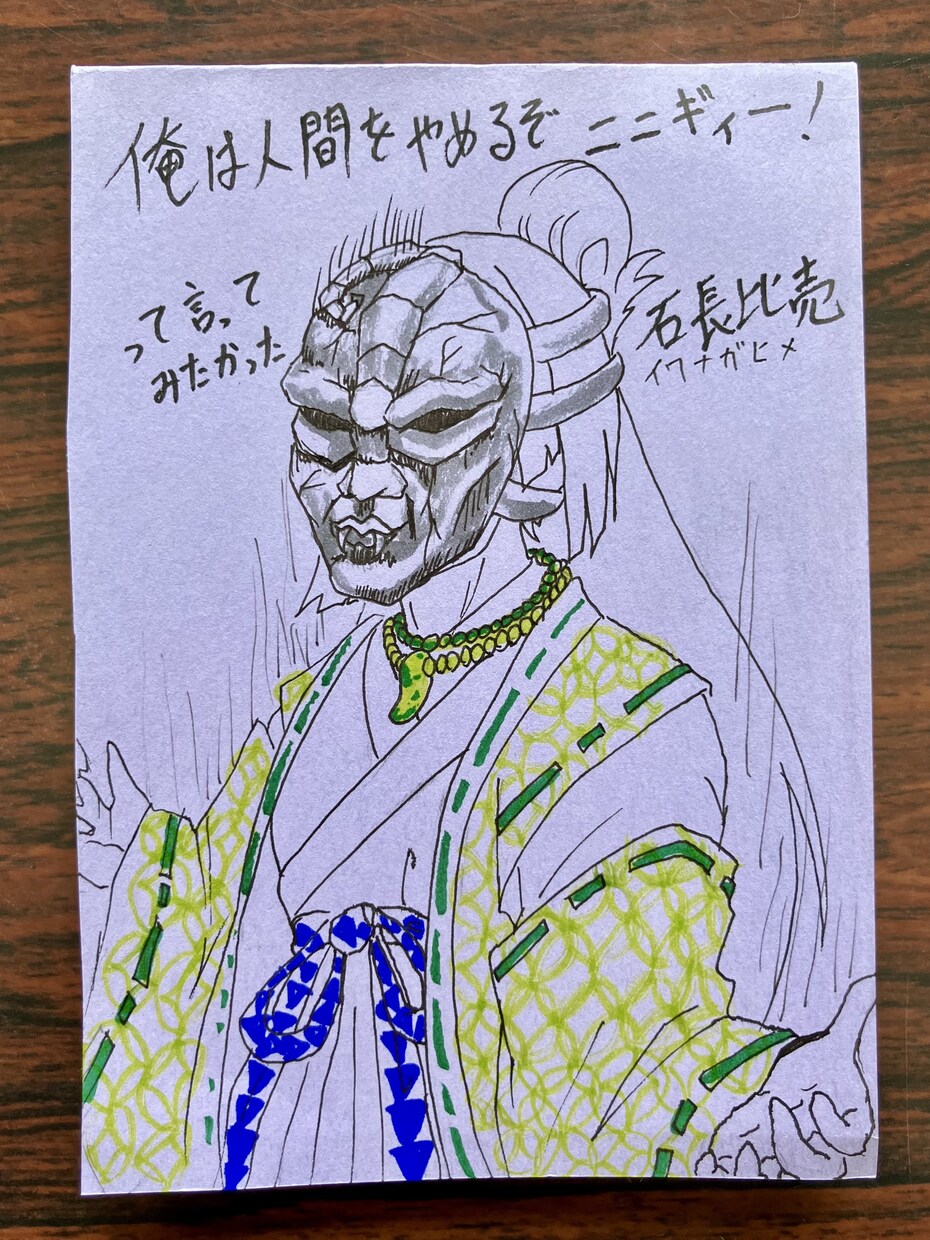 俺は人間をやめるぞ ニニギィー!
って言って
みたかった
石長比売
イワナガヒメ